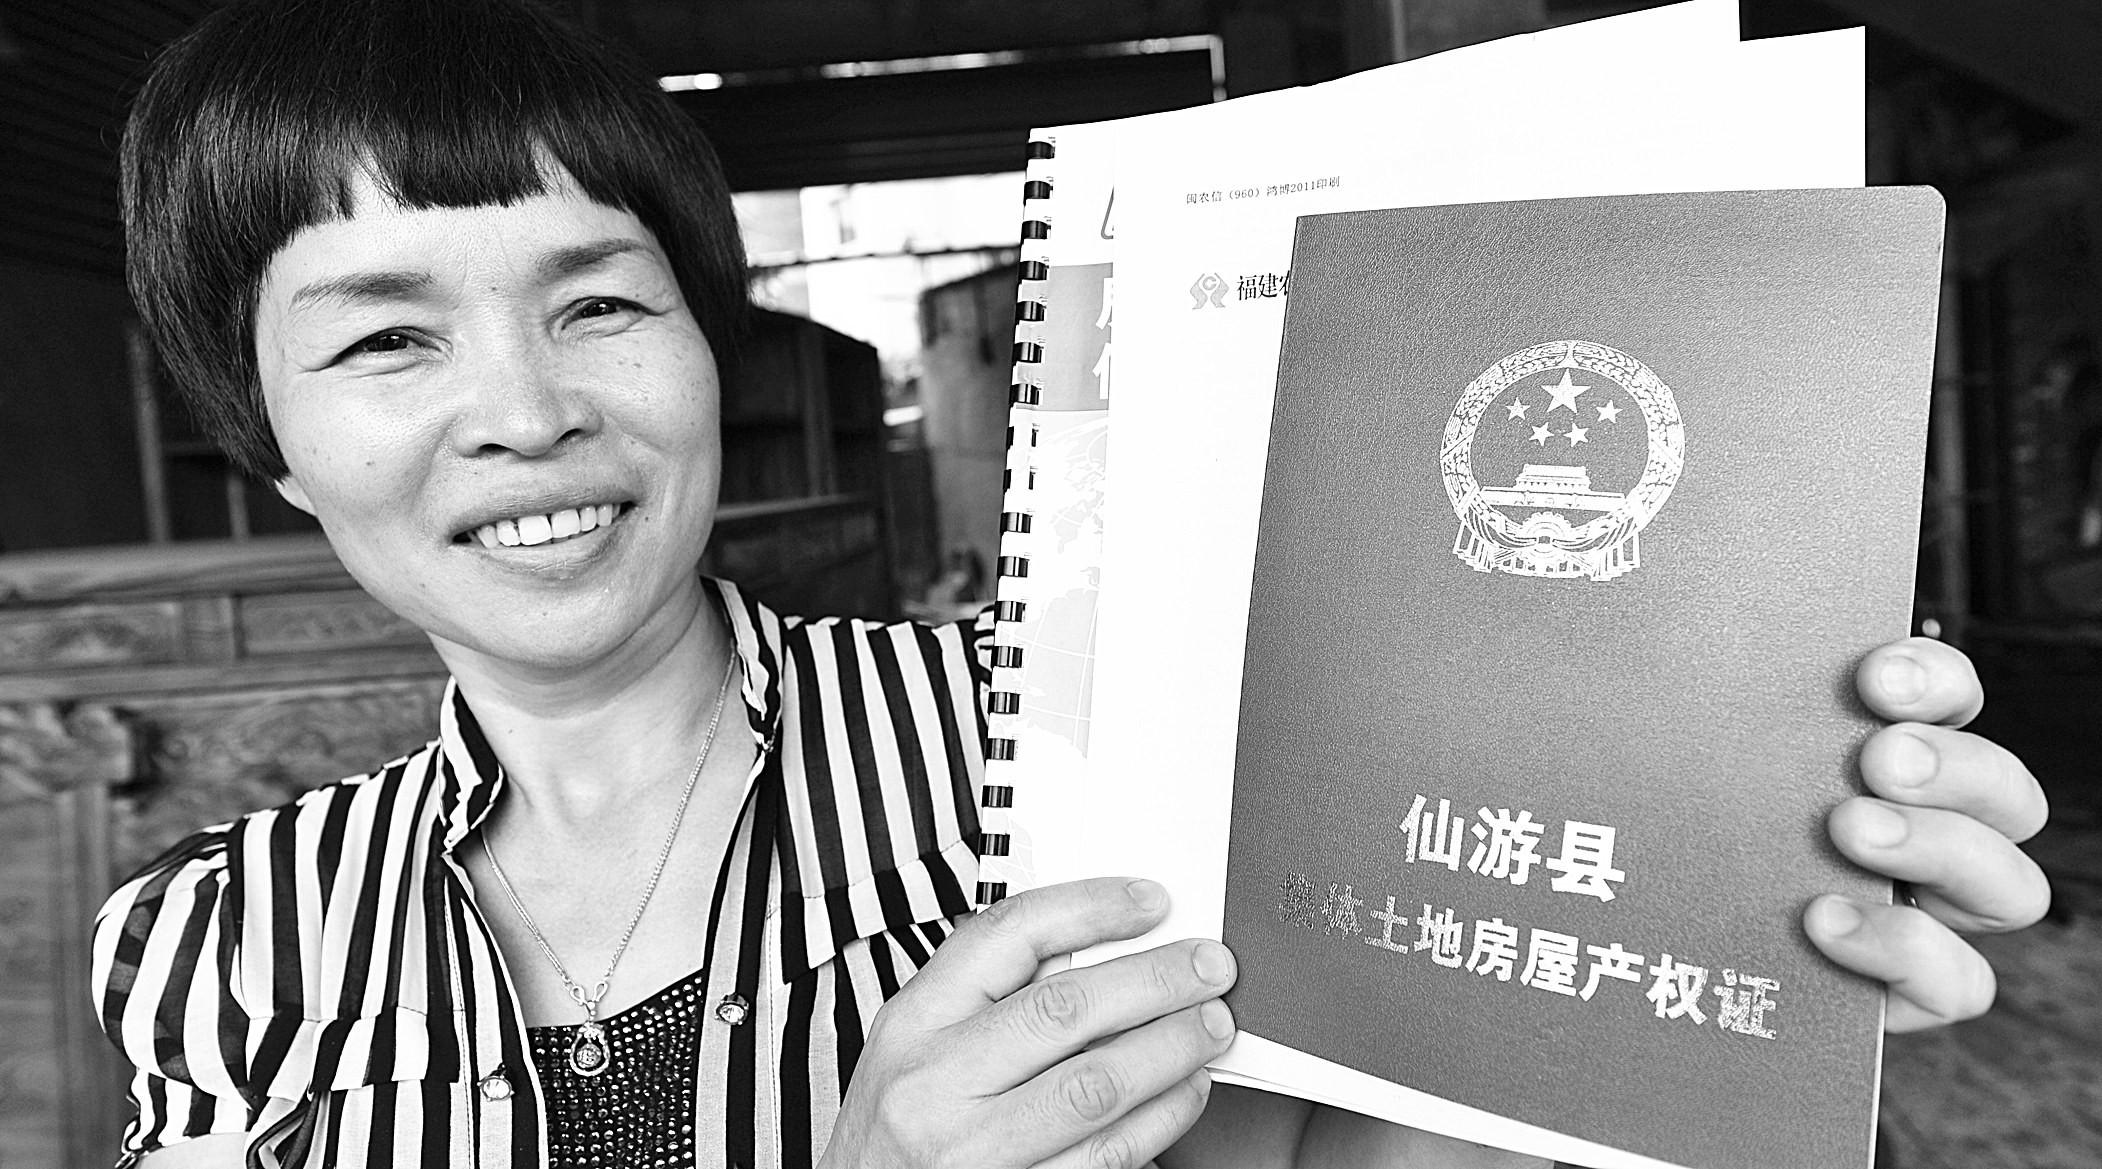 闽农信（960）鸿博2011印刷
福建农
仙游县
集体土地房屋产权证